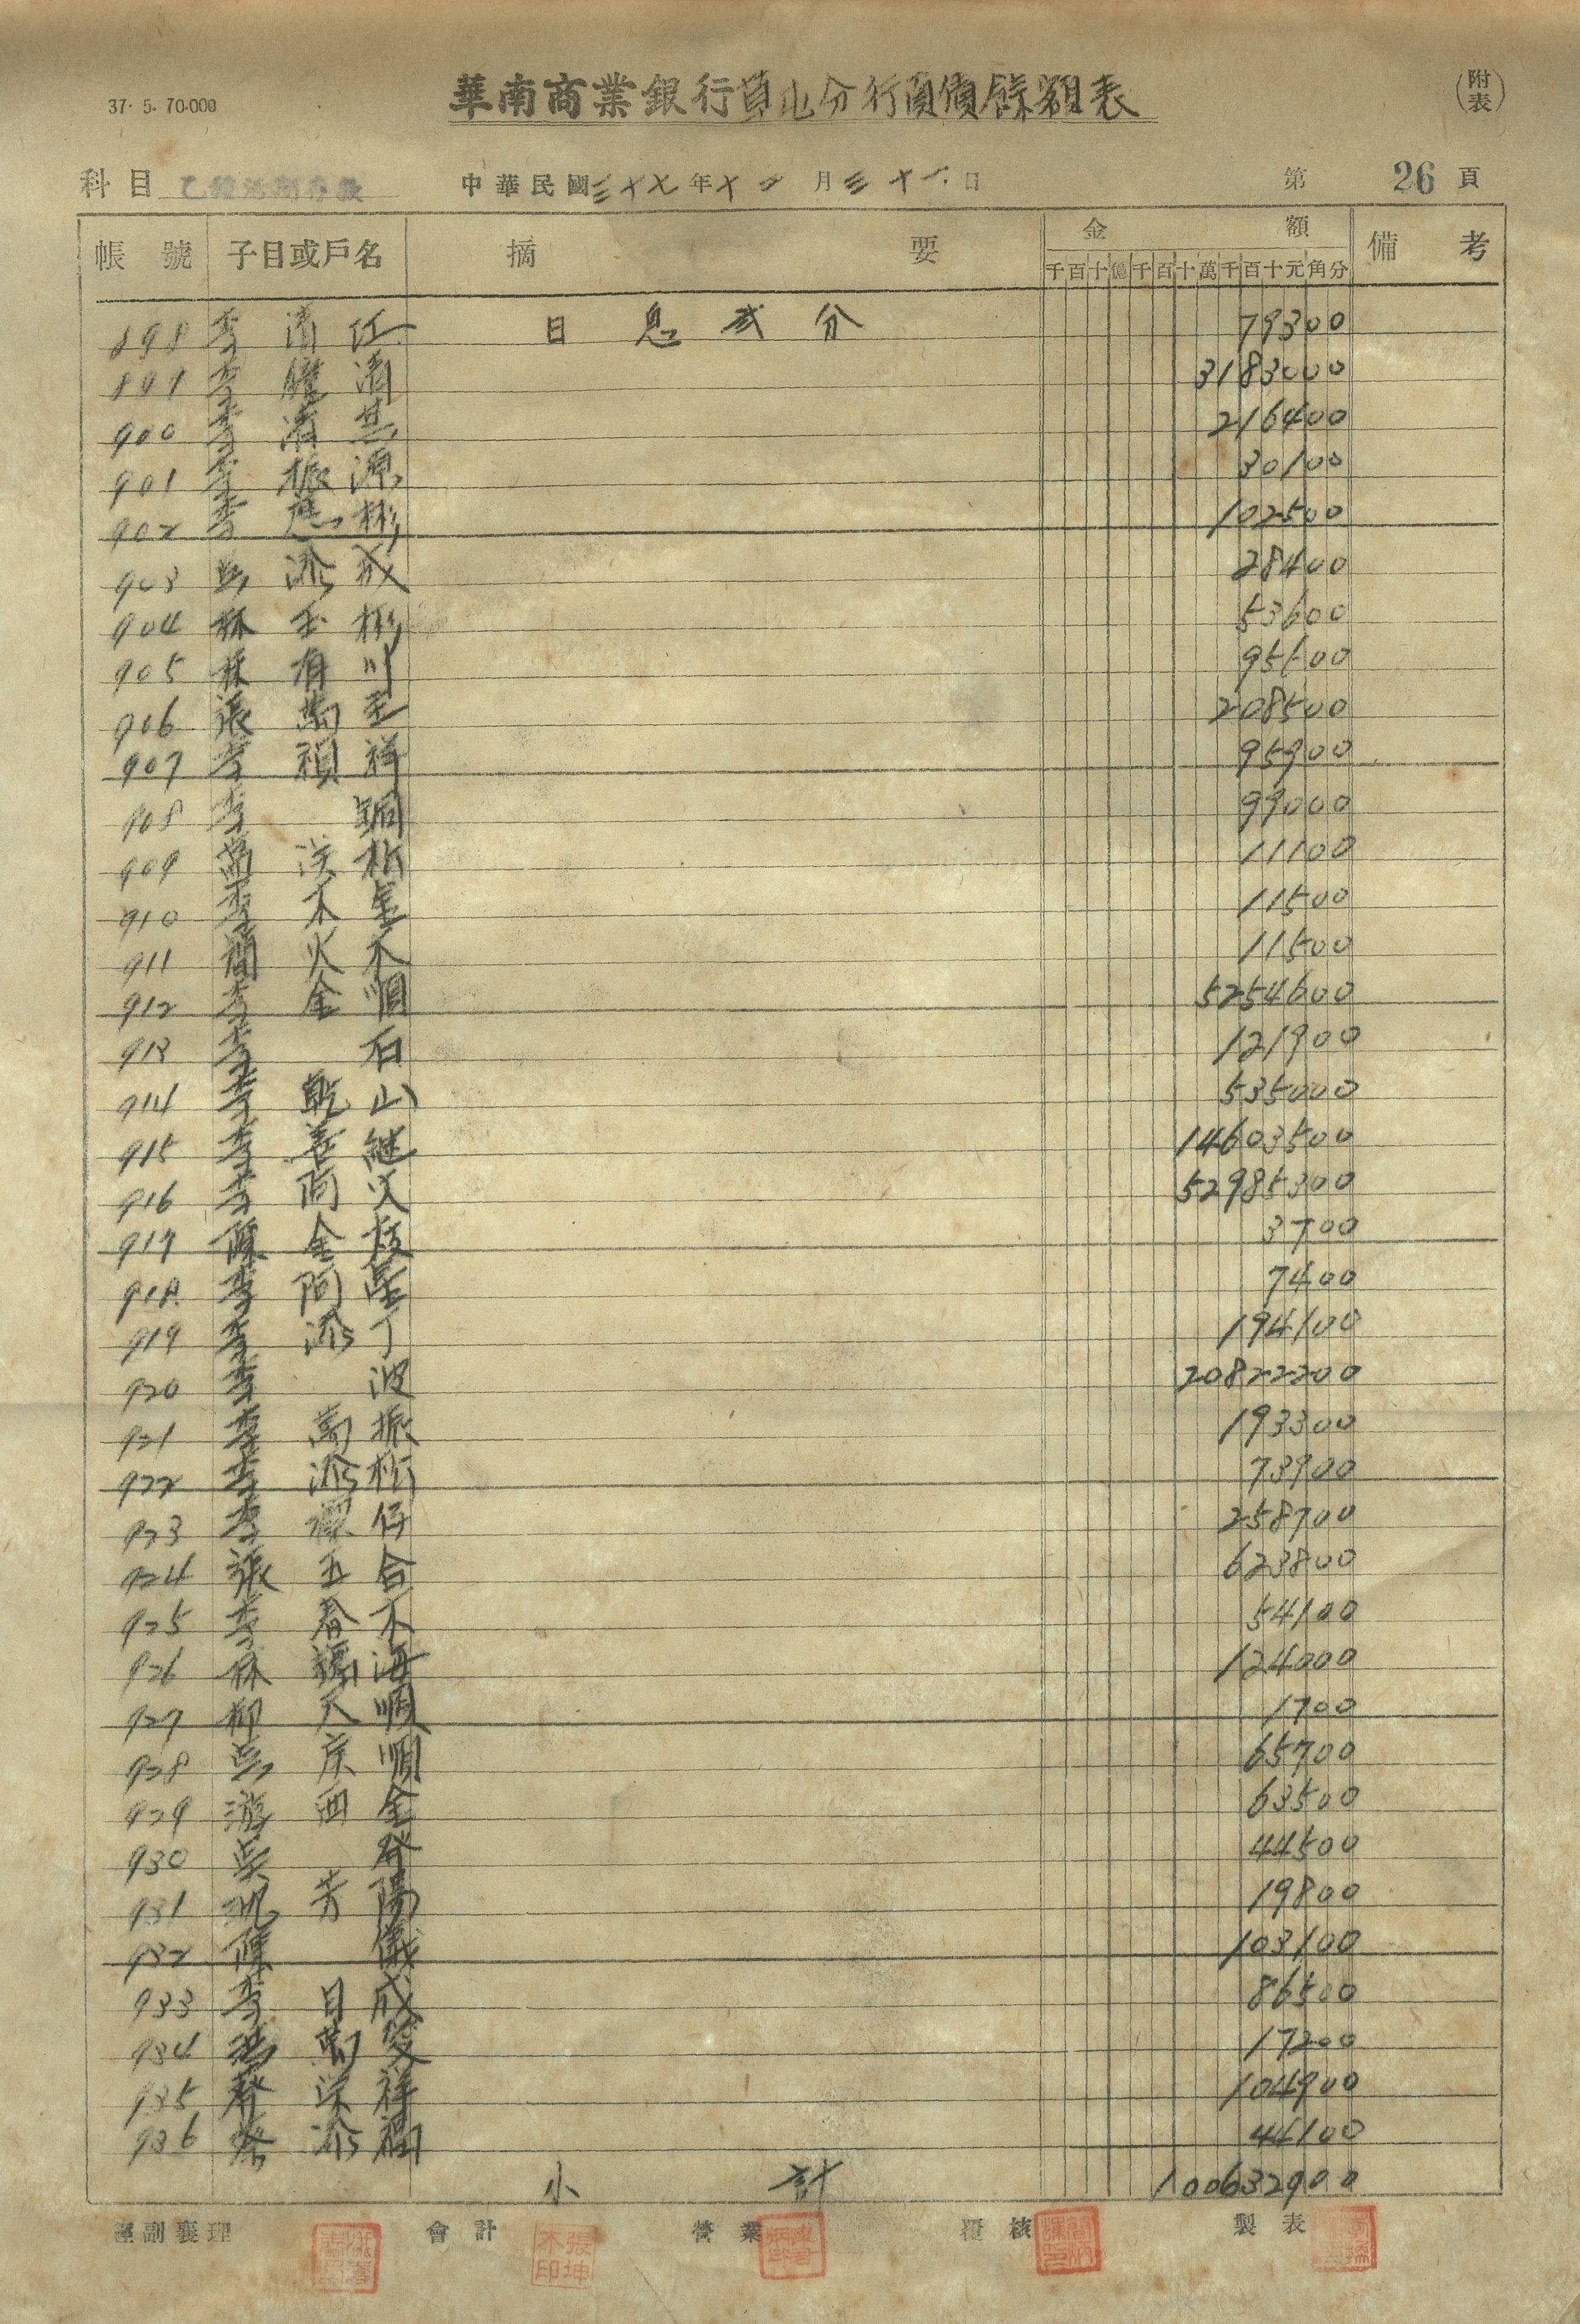 37. 5. 70.000
華南商業銀行負債餘額表
(附表)
科目 乙種活期存款
中華民國三十七年十 月三十一日
第 26 頁
帳號 子目或戶名 摘要 金額 備考
千百十億千百十萬千百十元角分
898 李清江 日息貳分 79300
899 李 清 3183000
900 李 216400
901 李振源 30100
902 李應彬 102500
903 吳添成 28400
904 林玉彬 53600
905 林有川 95600
906 張萬至 208500
907 李禎祥 95900
908 李銅 99000
909 11100
910 李木 11500
911 簡火木 11500
912 李金順 5254600
913 李石 121900
914 李乾山 535000
915 李善継 14603500
916 李阿火 52985300
917 陳金枝 3700
918 李阿 7400
919 李添丁 194100
920 李波 20822200
921 李萬振 193300
922 李添松 73900
923 李 仔 258700
924 張玉合 623800
925 李春木 54100
926 林 海 124000
927 柳天順 1700
928 吳庆順 65700
929 游西全 63500
930 吳 44500
931 芳陽 19800
932 陳儀 103100
933 李日成 86500
934 馮萬 17200
935 栄祥 104900
936 蔡添福 44100
小計 100632900
經副襄理 會計 營業 覆核 製表
張坤木印